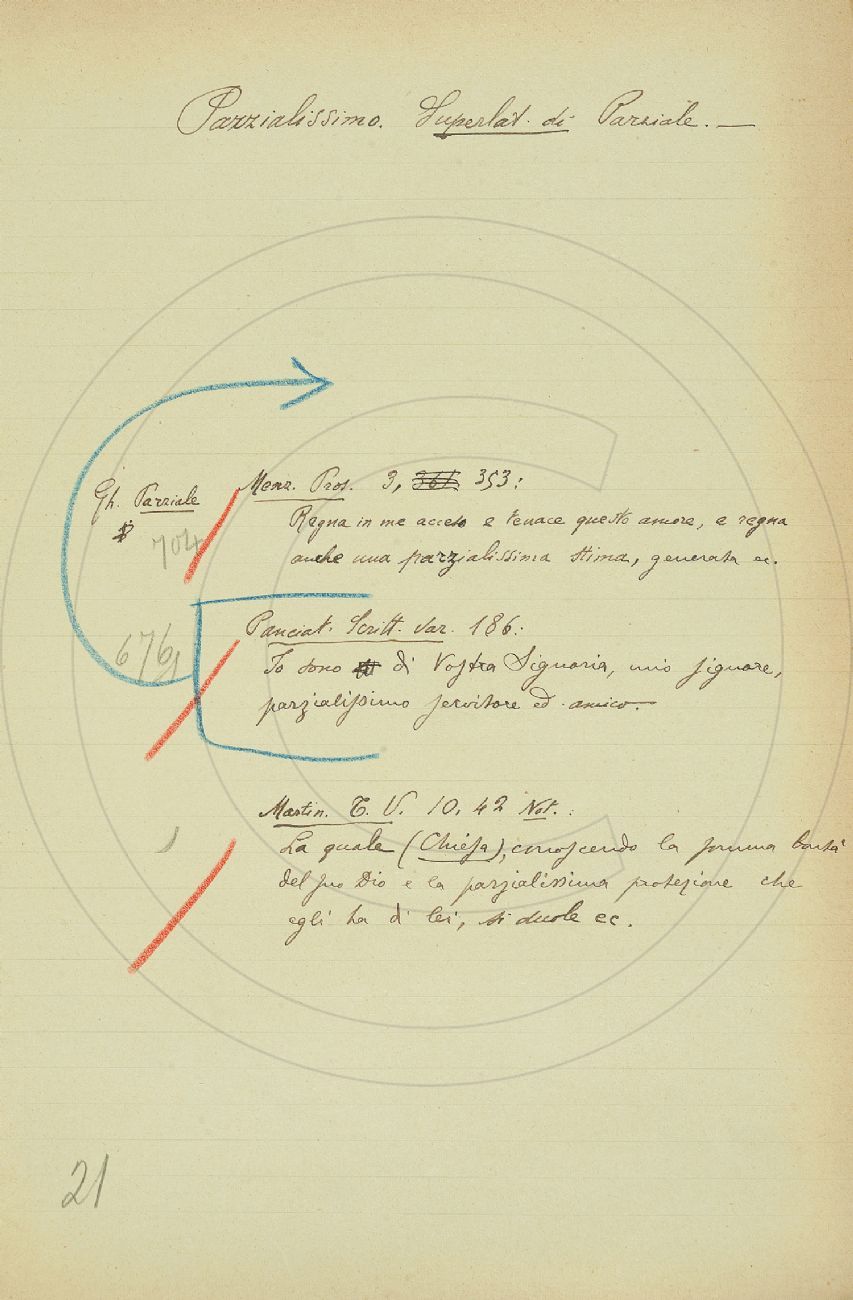 Parzialissimo. Superlat. di Parziale. —
Gh. Parziale
704
Menz. Pros. 3, 361. 353:
Regna in me acceso e tenace questo amore, e regna
anche una parzialissima stima, generata ec.
676
Panciat. Scritt. var. 186:
Io sono di Vostra Signoria, mio signore,
parzialissimo servitore ed amico. —
Martin. T. V. 10, 42 Not.:
La quale (Chiesa), conoscendo la somma bontà
del suo Dio e la parzialissima protezione che
egli ha di lei, si duole ec.
21